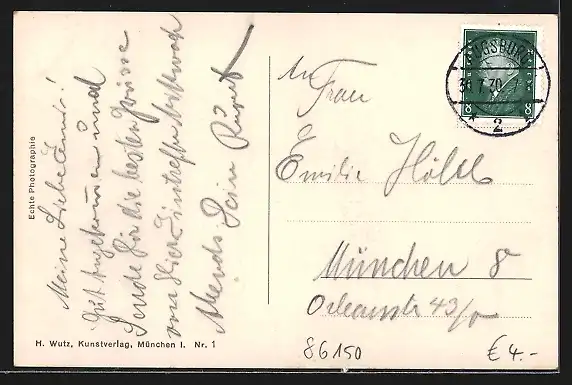 Meine Liebe Emmi!
Gut angekommen und
sende Dir die besten Grüsse
von hier Eintreffe Mittwoch
Abends Dein Rupert
Echte Photographie
H. Wutz, Kunstverlag, München I. Nr. 1
AUGSBURG
30.7.30
2
8
8
An
Frau
Emilie Hölzl
München 8
Orleanstr 43/0
86150
€ 4.-